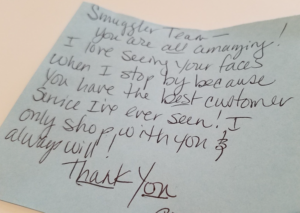 Smuggler Team -
You are all amazing!
I love seeing your faces
when I stop by because
you have the best customer
service I've ever seen! I
only shop with you &
always will!
Thank You